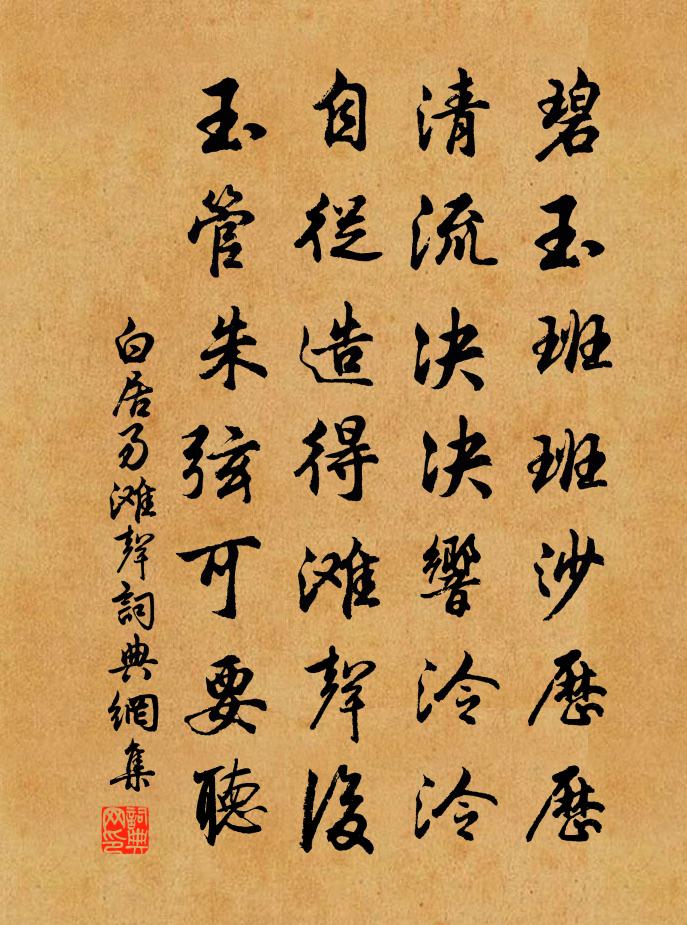 碧玉班班沙歷歷
清流决决響泠泠
自從造得滩聲後
玉管朱弦可要聽
白居易滩聲詞典網集
詞典网印